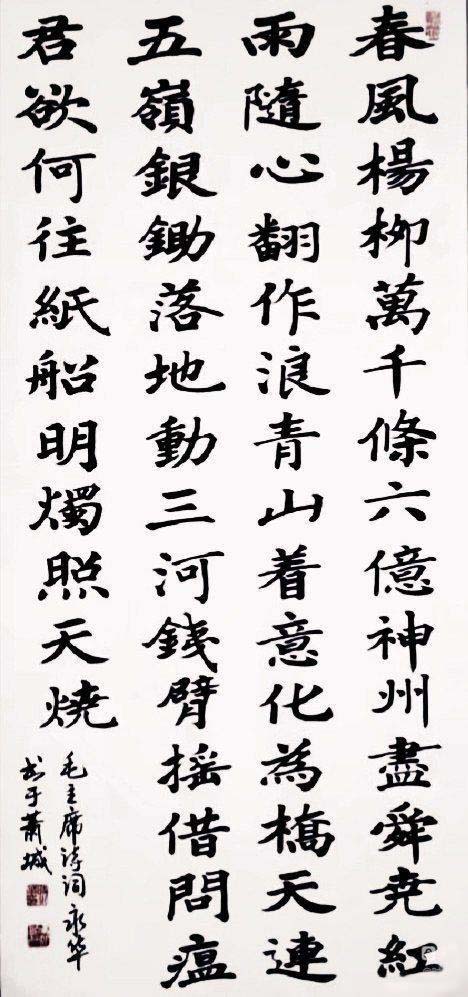 春風楊柳萬千條六億神州盡舜尧紅
雨隨心翻作浪青山着意化為橋天連
五嶺銀鋤落地動三河鐵臂摇借問瘟
君欲何往紙船明燭照天燒
毛主席诗词永华
书于萧城